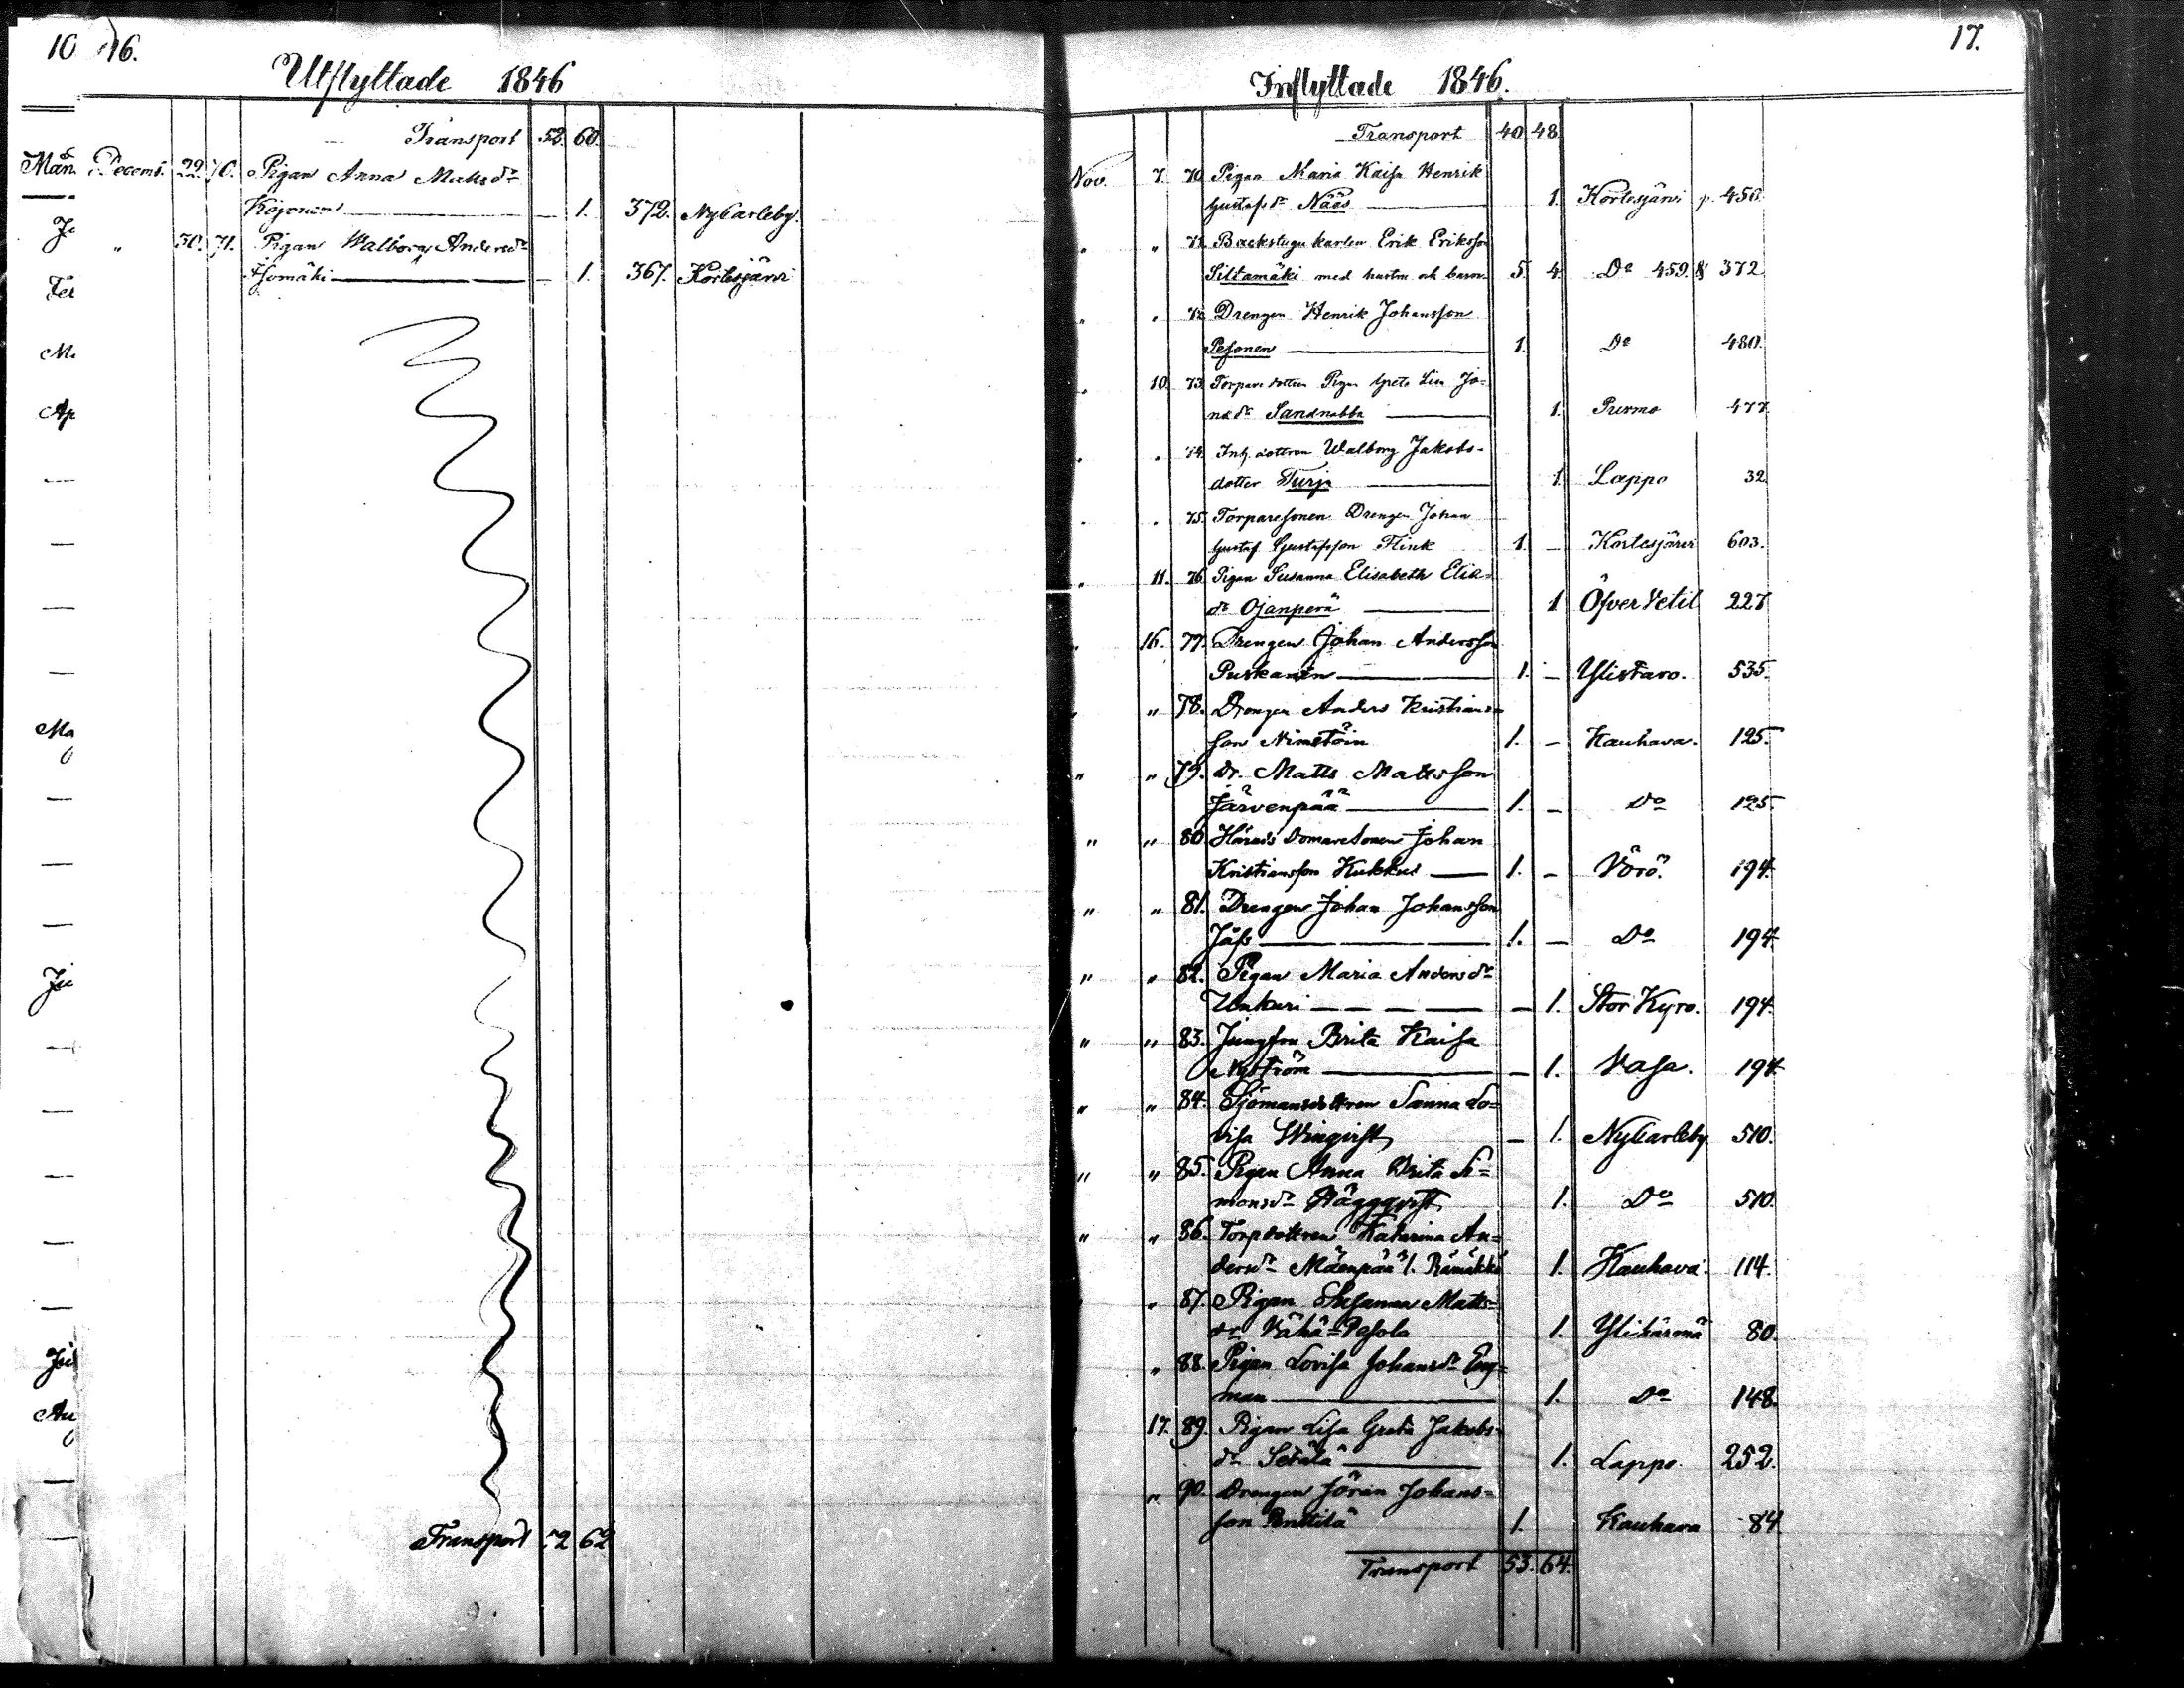 16.
Utflyttade 1846
Transport 52. 60.
Decemb. 22. 70. Pigan Anna Matsdr
Kojonen — 1. 372. NyCarleby.
" 30. 71. Pigan Walborg Andersdr
— 1. 367. Kortesjärvi
Transport 52 62
17.
Inflyttade 1846.
Transport 40. 48.
Nov. 7. 70. Pigan Maria Kaisa Henrik
Gustafsdr Nääs 1. Kortesjärvi p. 456.
" " 71. Backstugukarlen Erik Eriksson
Siltamäki med hustru och barn 5. 4. Do 459. & 372
" " 72. Drengen Henrik Johansson
Pesonen 1. Do 480.
" 10. 73. Torpare dottren Pigan Greta Lisa Jo-
nadr Sandnabba 1. Purmo 477
" " 74. Inh. dottren Walborg Jakobs-
dotter Turja 1. Lappo 32.
" " 75. Torparesonen Drengen Johan
Gustaf Gustafsson Flink 1. — Kortesjärvi 603.
" 11. 76. Pigan Susanna Elisabeth Elia-
dr Ojanperä 1 Öfver Vetil 227
" 16. 77. Drengen Johan Andersson
1. — Ylistaro. 535.
" " 78. Drengen Anders Kristians-
son 1. — Kauhava. 125.
" " 79. Dr. Matts Matsson
Järvenpää 1. — Do 125.
" " 80. Härads Domaresonen Johan
Kristiansson 1. — Vörö. 194.
" " 81. Drengen Johan Johansson
Jäfs 1. — Do 194.
" " 82. Pigan Maria Andersdr
Unkuri — 1. Stor Kyro. 194.
" " 83. Jungfru Brita Kaisa
Nyström — 1. Vasa. 194.
" " 84. Sjömansdottren Sanna Lo=
visa Winqvist — 1. NyCarleby 510.
" " 85. Pigan Anna Brita Si=
monsdr Häggqvist 1. Do 510.
" " 86. Torpdottren Katarina An=
dersdr Mäenpää l. 1. Kauhava. 114.
" 87. Pigan Susanna Matts=
dr Vähä=Pesola 1. Ylihärmä 80.
" 88. Pigan Lovisa Johansdr Eng=
man 1. Do 148.
17. 89. Pigan Lisa Greta Jakobs=
dr Setälä 1. Lappo. 252.
" 90. Drengen Jöran Johans=
son Penttilä 1. Kauhava 84
Transport 53. 64.